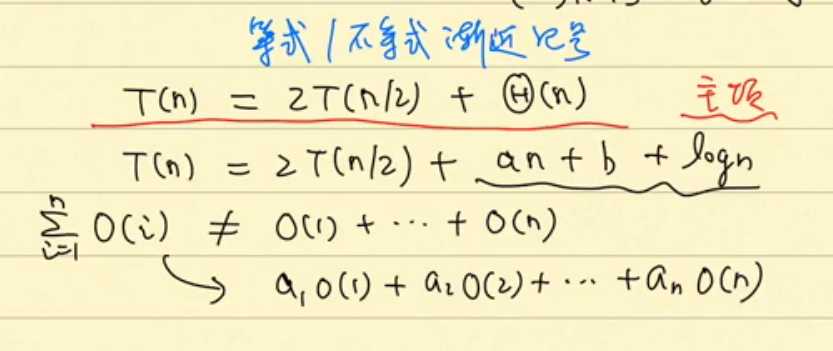 等式 / 不等式 渐近记号
T(n) = 2T(n/2) + Θ(n) 主项
T(n) = 2T(n/2) + an + b + logn
∑_{i=1}^{n} O(i) ≠ O(1) + ⋯ + O(n)
a₁O(1) + a₂O(2) + ⋯ + aₙO(n)